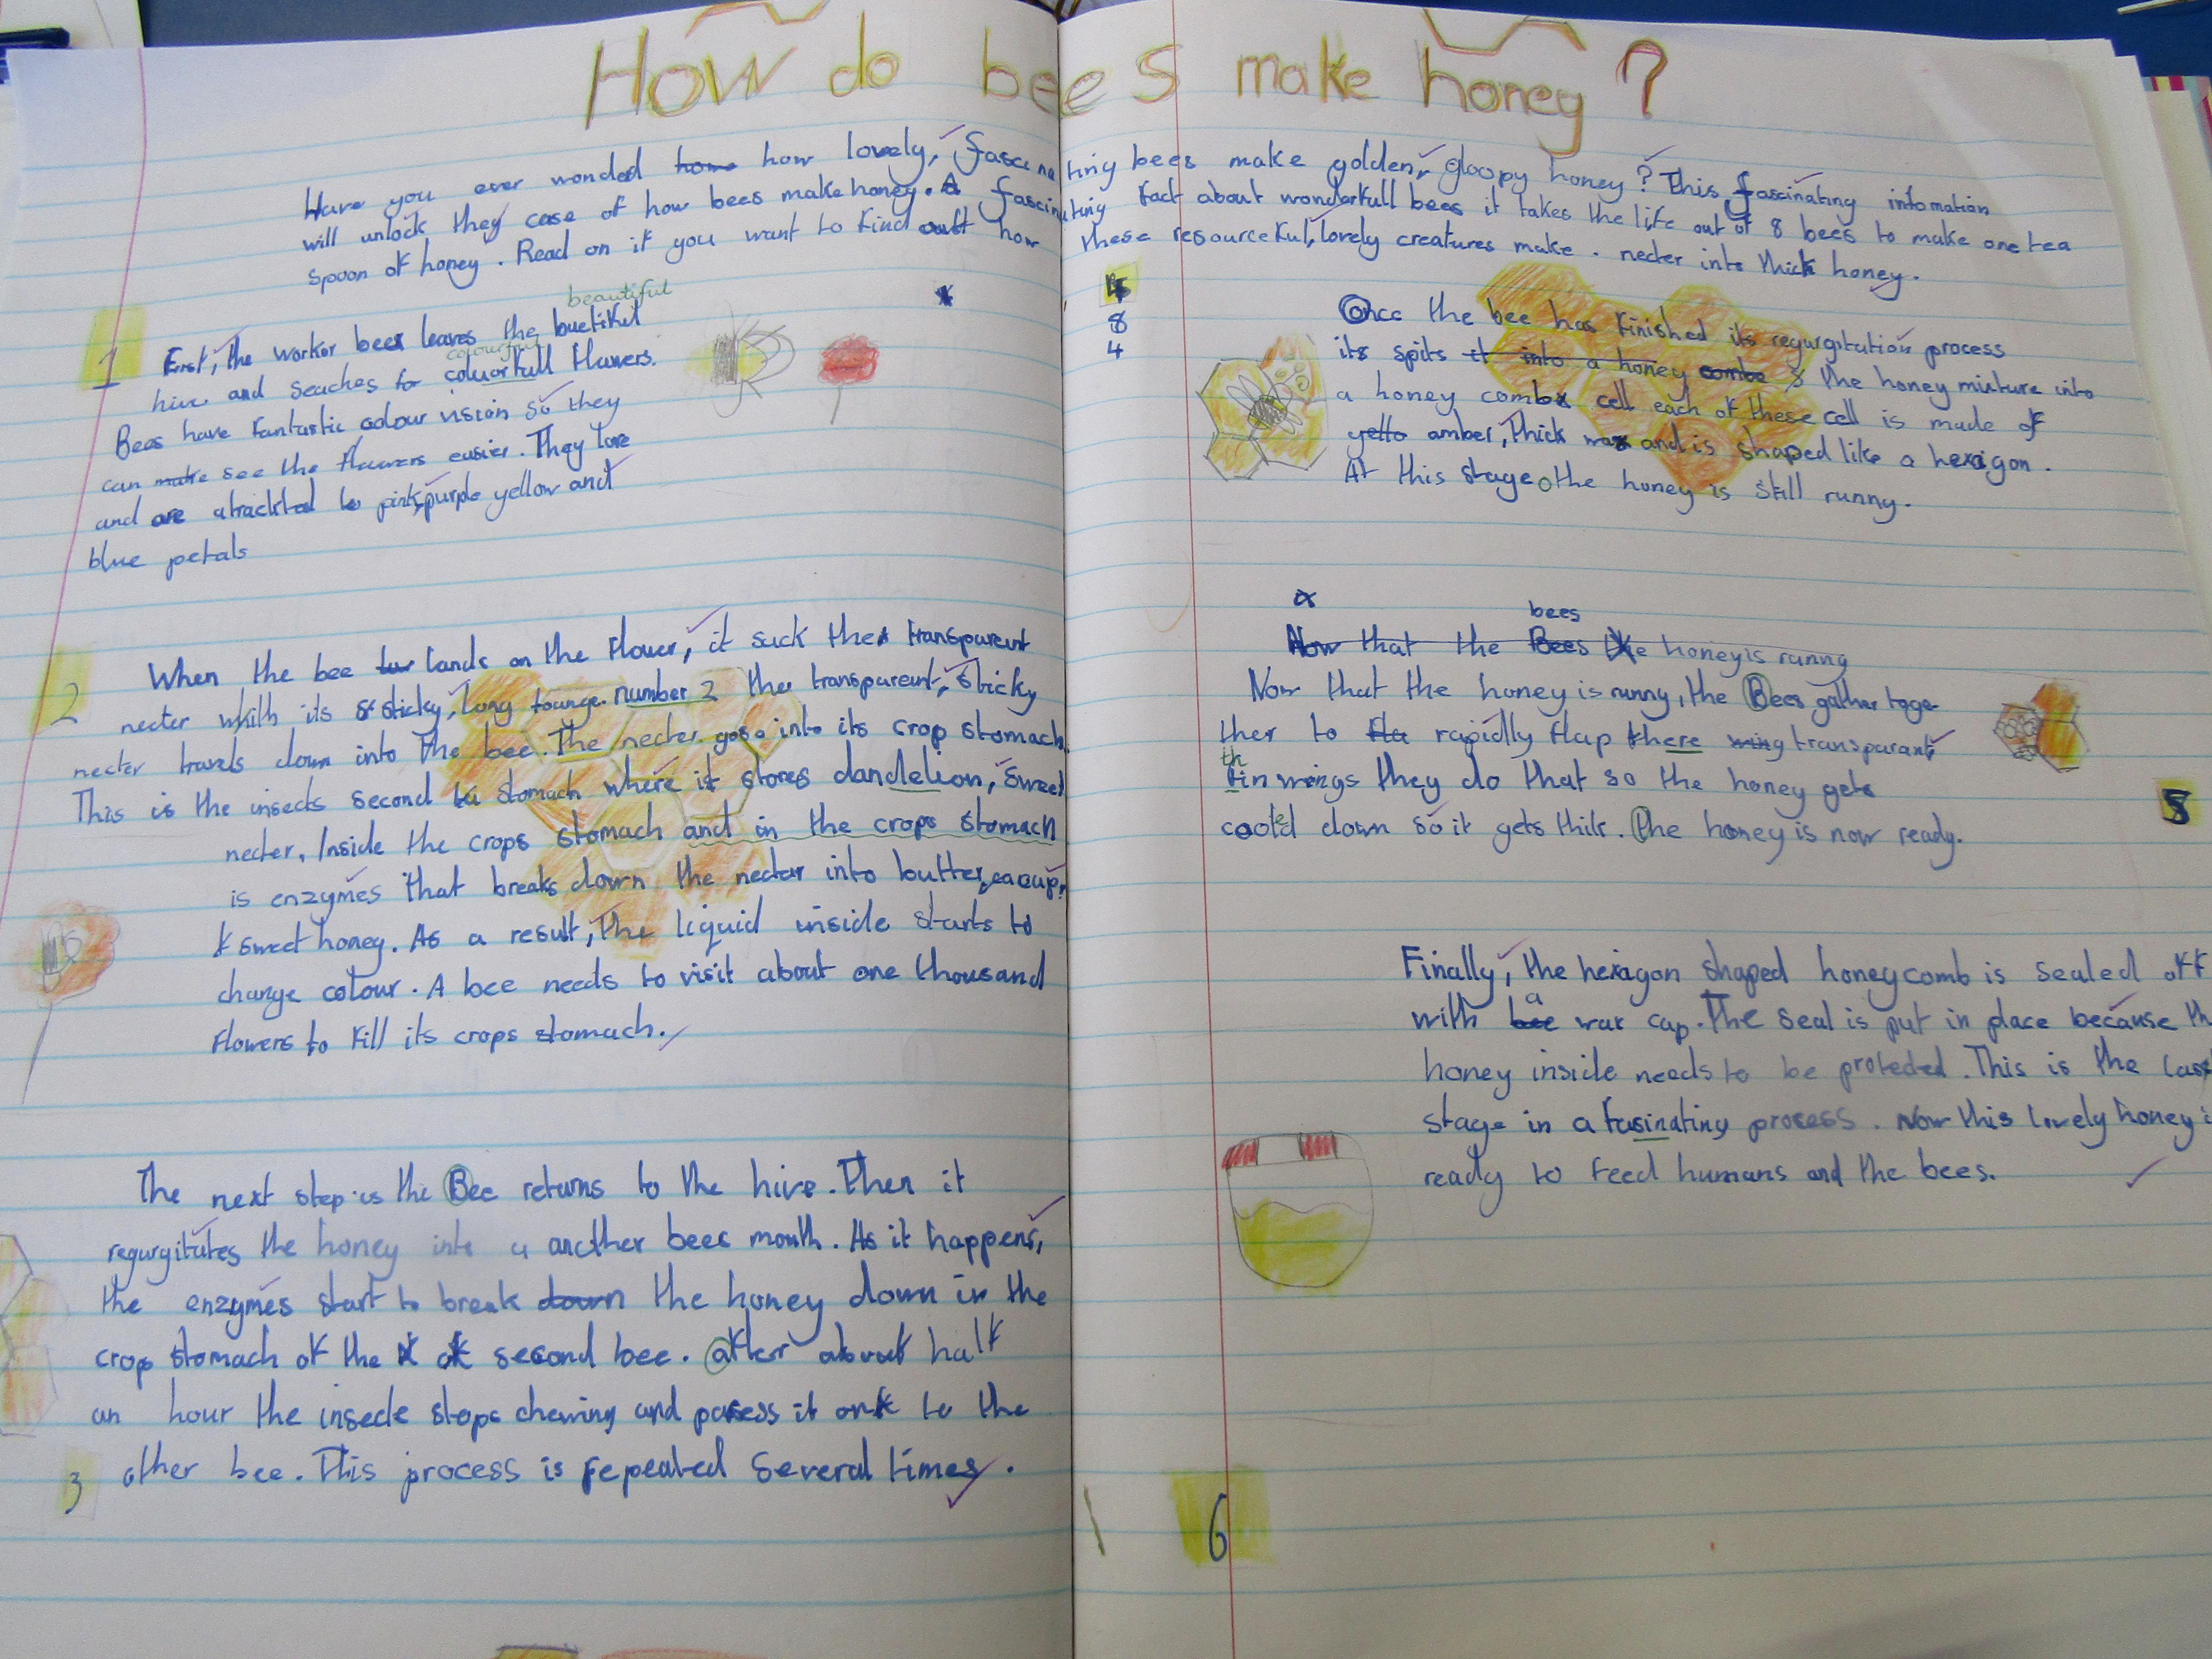 How do bees make honey?
Have you ever wonded home how lovely, fascinating bees make golden, gloopy honey? This fascinating infomation
will unlock they case of how bees make honey. A fascinating fact about wonderfull bees it takes the life out of 8 bees to make one tea
spoon of honey. Read on if you want to find outt how these resourceful, lovely creatures make. necter into thick honey.
beautiful
1 First, the worker bees leaves the buetiful
colourful
hive and seaches for colourfull flawers.
Bees have fantastic colour vision so they
can make see the flawers easier. They love
and are atrackted to pink, purple yellow and
blue petals
2 When the bee lands on the flower, it suck the transparent
necter whith its sticky, long tounge. number 2 the transparent, sticky
necter travels down into the bee. The necter goes into its crop stomach.
This is the insects second stomach where it stores dandelion, sweet
necter. Inside the crops stomach and in the crops stomach
is enzymes that breaks down the nectar into buttercup,
sweet honey. As a result, the liquid inside starts to
change colour. A bee needs to visit about one thousand
flowers to fill its crops stomach.
The next step is the Bee returns to the hive. Then it
regurgitates the honey into a another bees mouth. As it happens,
the enzymes start to break down the honey down in the
crop stomach of the of second bee. after about half
an hour the insecte stops chewing and passess it ont to the
3 other bee. This process is repeated several times.
4
8
4
Once the bee has finished its regurgitation process
its spits it into a honey combe the honey mixture into
a honey comb cell each of these cell is made of
yello amber, thick wax and is shaped like a hexigon.
At this stage the honey is still runny.
bees
Now that the Bees the honey is runny
Now that the honey is runny, the Bees gather toge
ther to fla rapidly flap there wing transparant
th
fin wings they do that so the honey gets
cooled down so it gets thik. the honey is now ready.
5
Finally, the hexigon shaped honeycomb is sealed off
a
with bee wax cap. The seal is put in place because th
honey inside needs to be proteded. This is the last
stage in a fasinating process. Now this lovely honey i
ready to feed humans and the bees.
6